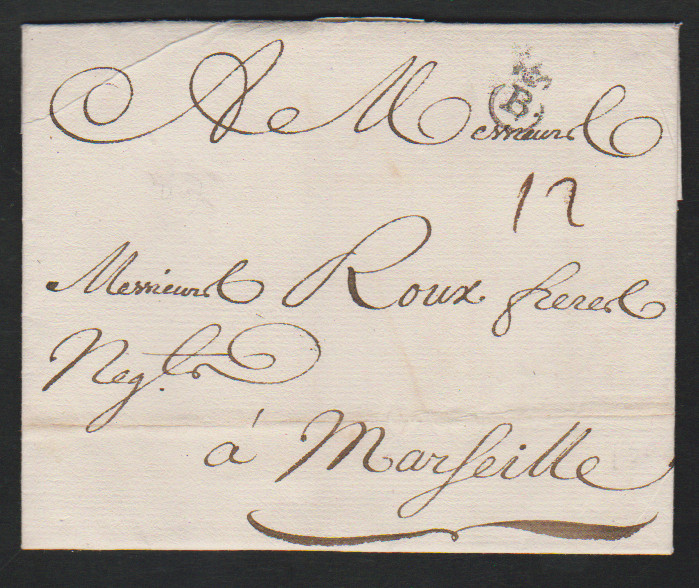 A Messieurs
B
12
Messieurs Roux freres
Negts
à Marseille